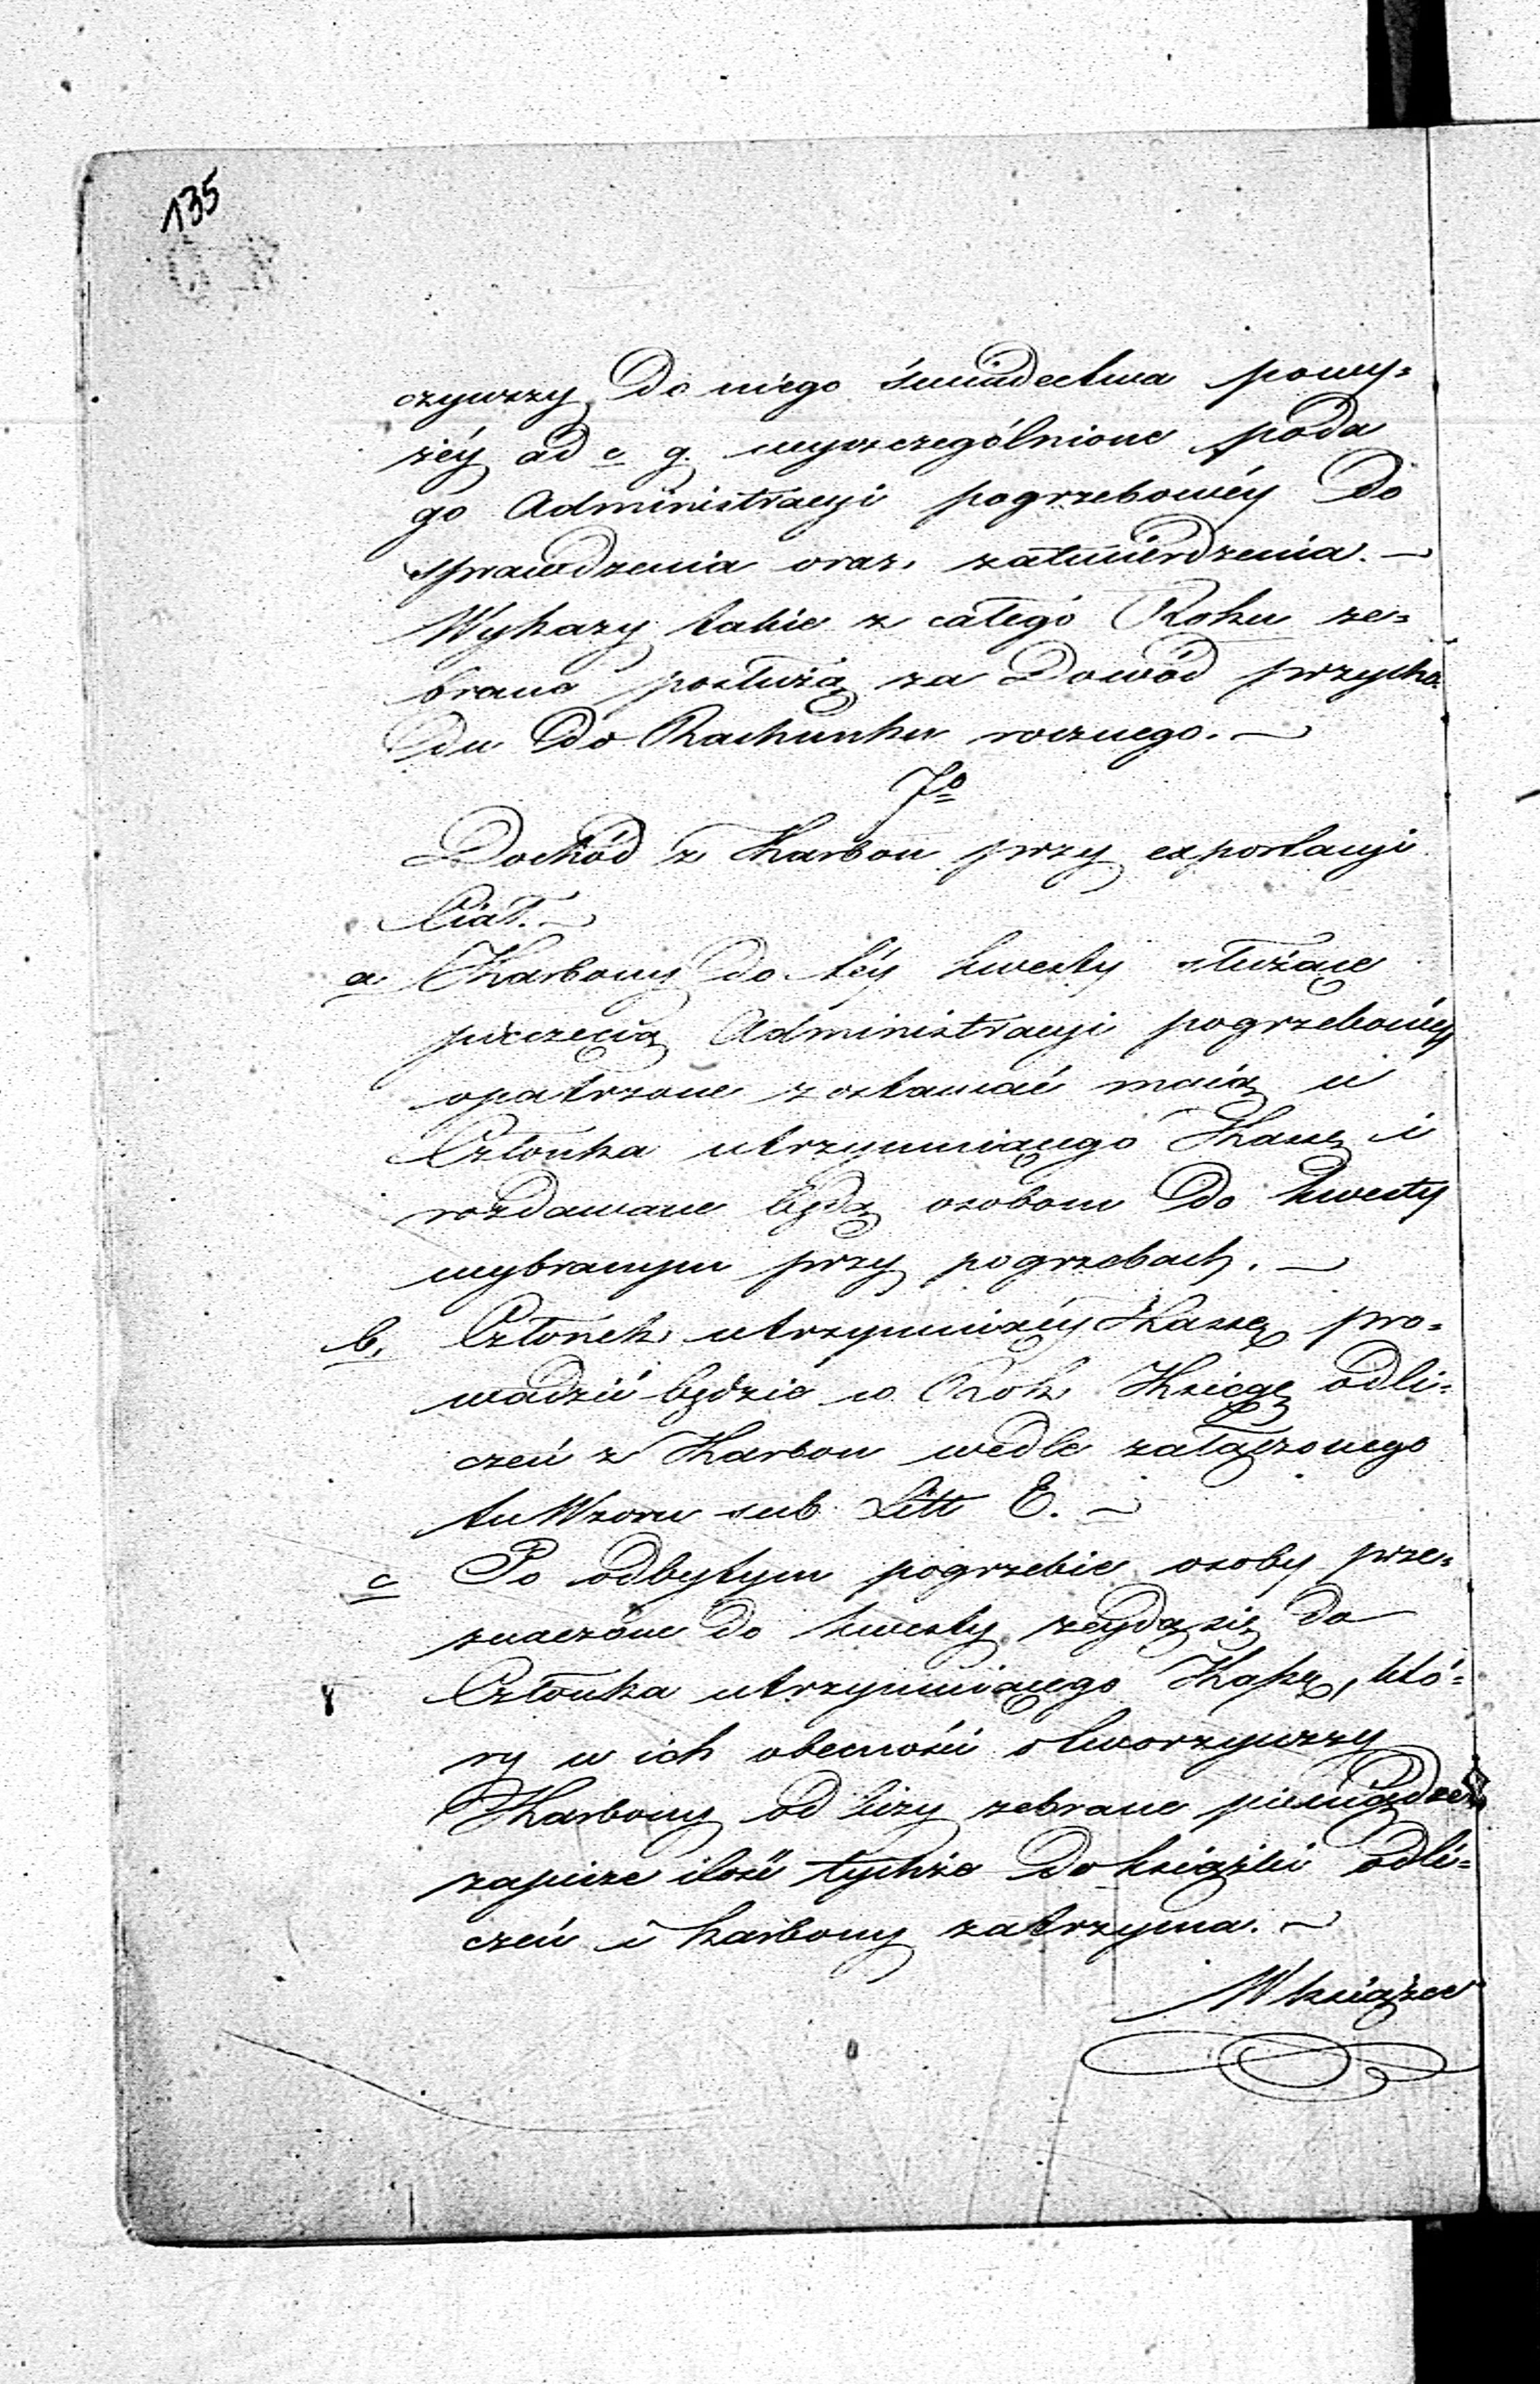 135
czywszy do niego świadectwa powy=
żéy ad c g. wyszczególnione poda
go Administracyi pogrzebowéy do
sprawdzenia oraz zatwierdzenia. —
Wykazy takie z całego Roku ze=
brane posłużą za Dowód przycho=
du do Rachunku rocznego. —
7º
Dochód z Karbon przy exportacyi
Ciał. —
a. Karbony do téy kwesty służące
pieczęcią Administracyi pogrzebowéy
opatrzone zostawać maią u
Członka utrzymuiącego Kassę i
rozdawane będą osobom do kwesty
wybranym przy pogrzebach. —
b. Członek utrzymuiący Kassę pro=
wadzić będzie w Rok Księgę odli=
czeń z Karbon wedle załączonego
tu Wzoru sub Litt E. —
c Po odbytym pogrzebie osoby prze=
znaczone do kwesty zeydą się do
Członka utrzymuiącego Kassę, któ=
ry w ich obecności otworzywszy
Karbony odliczy zebrane pieniądze
zapisze ilość tychże do książki odli=
czeń i karbony zatrzyma. —
W książce